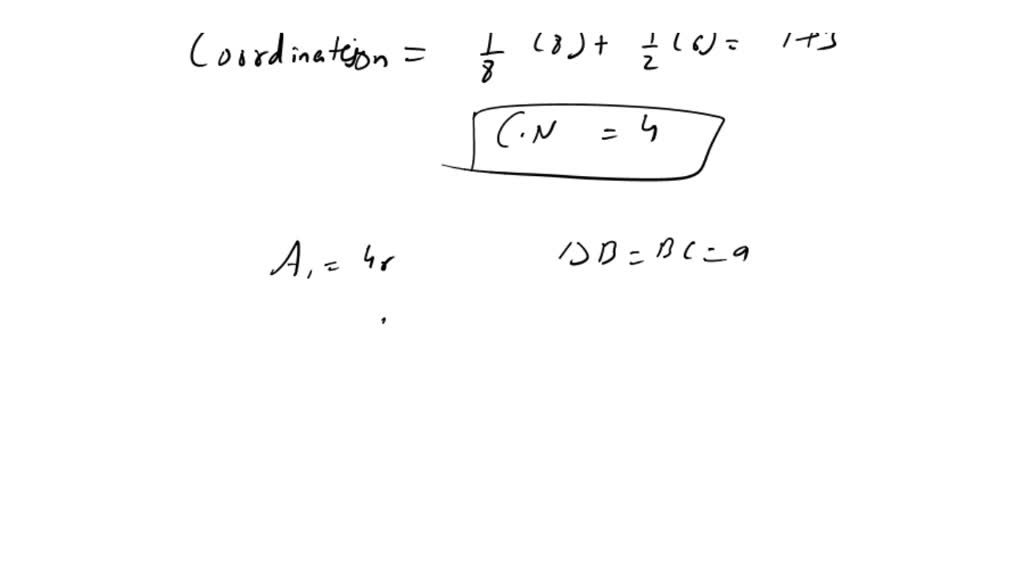 Coordination = 1/8 (8) + 1/2 (6) = 1+3
C.N = 4
A, = 4r DB = BC = a